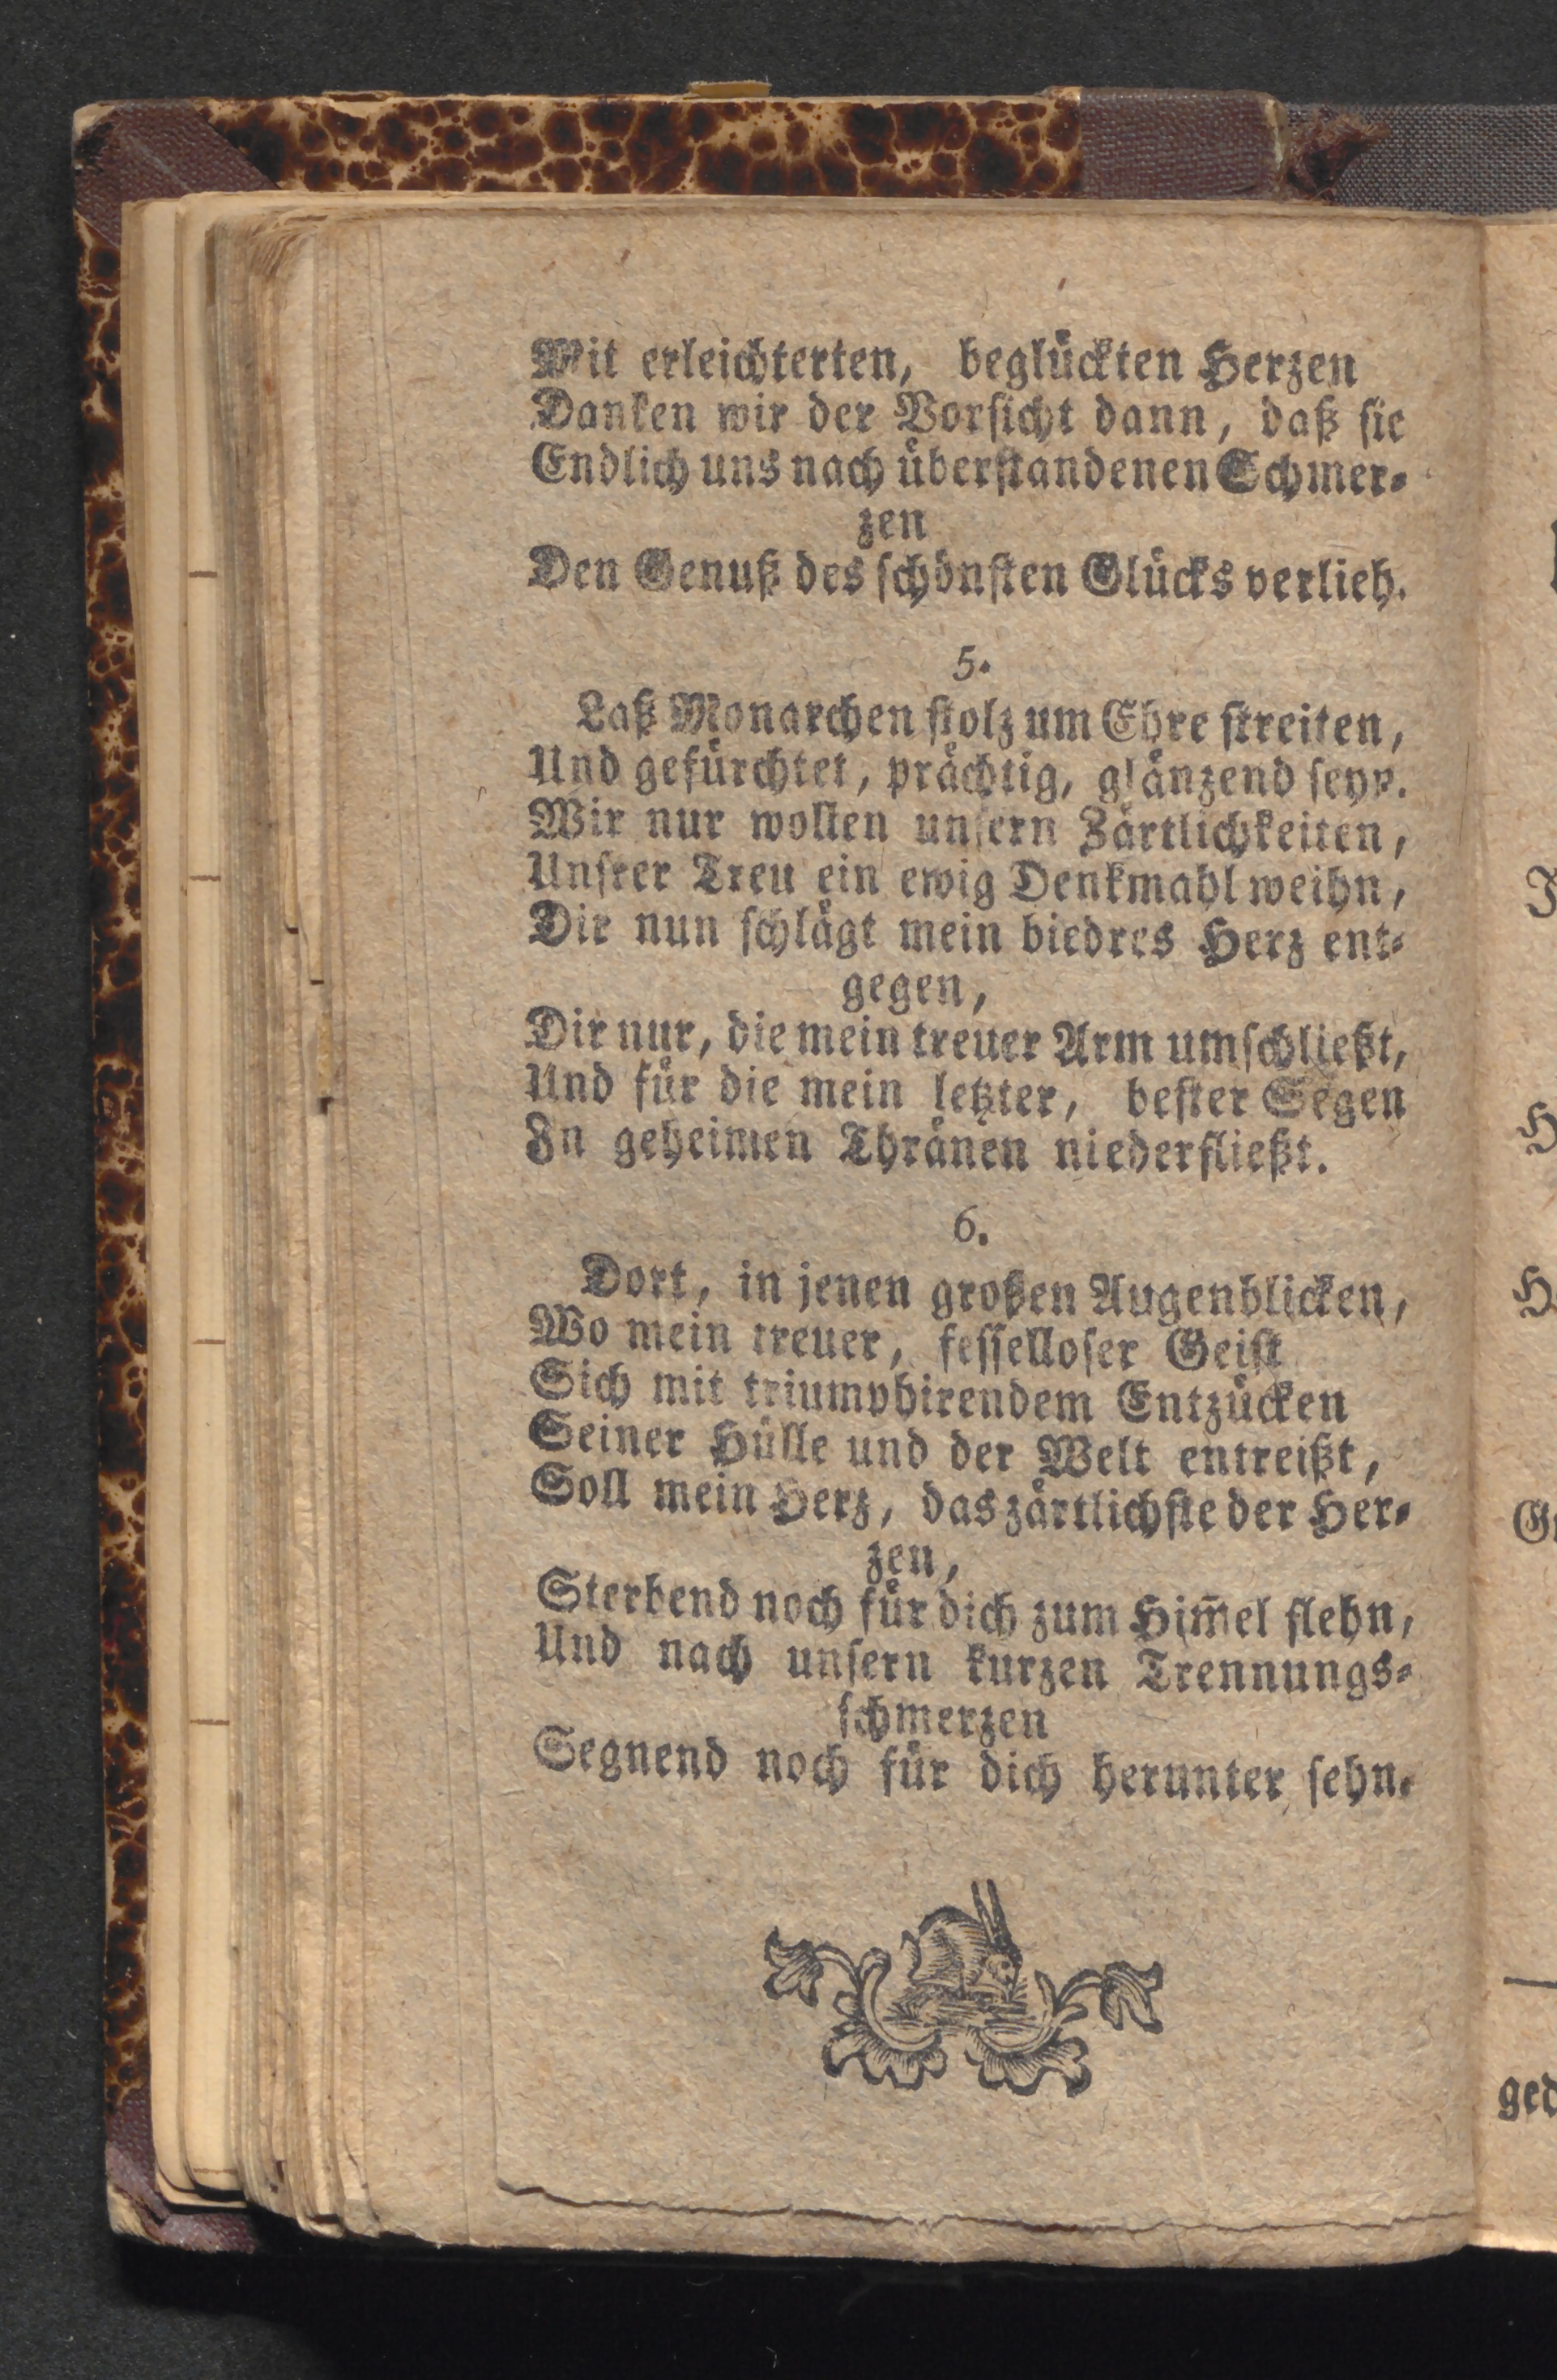 Mit erleichterten, beglückten Herzen
Danken wir der Vorſicht dann, daß ſie
Endlich uns nach überſtandenen Schmer⸗
zen
Den Genuß des ſchönſten Glücks verlieh.
5.
Laß Monarchen ſtolz um Ehre ſtreiten,
Und gefürchtet, prächtig, glänzend ſeyn.
Wir nur wollen unſern Zärtlichkeiten,
Unſrer Treu ein ewig Denkmahl weihn,
Dir nun ſchlägt mein biedres Herz ent⸗
gegen,
Dir nur, die mein treuer Arm umſchließt,
Und für die mein letzter, beſter Segen
In geheimen Thränen niederfließt.
6.
Dort, in jenen großen Augenblicken,
Wo mein treuer, feſſelloſer Geiſt
Sich mit triumphirendem Entzücken
Seiner Hülle und der Welt entreißt,
Soll mein Herz, das zärtlichſte der Her⸗
zen,
Sterbend noch für dich zum Him̄el flehn,
Und nach unſern kurzen Trennungs⸗
ſchmerzen
Segnend noch für dich herunter ſehn.